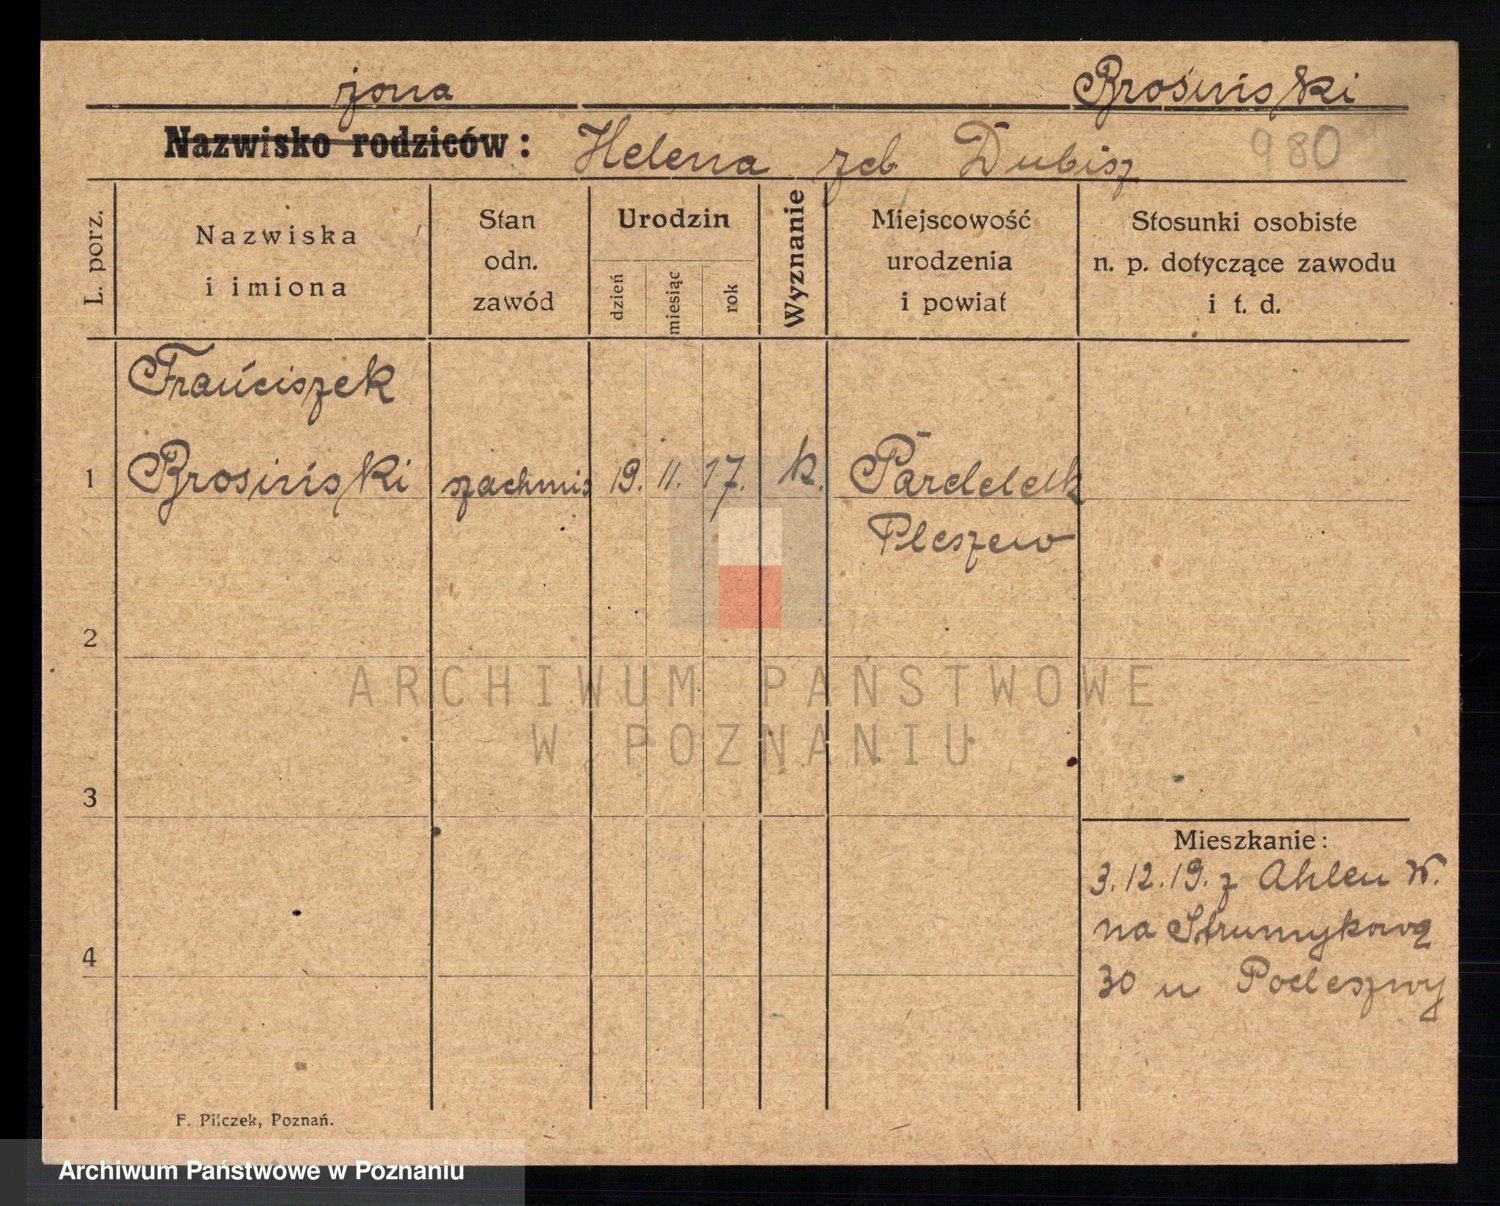 żona
Brosiński
Nazwisko rodziców :
Helena zeb Dubisz
980
L. porz.
Nazwiska
i imiona
Stan
odn.
zawód
Urodzin
dzień
miesiąc
rok
Wyznanie
Miejscowość
urodzenia
i powiat
Stosunki osobiste
n. p. dotyczące zawodu
i t. d.
Franciszek
1 Brosiński szachmis 19. 11. 17. k.
Pleszew
2
ARCHIWUM PAŃSTWOWE
W POZNANIU
3
Mieszkanie :
3.12.19. z Ahlen W.
na Strumykową
4
30 u Podeszwy
F. Pilczek, Poznań.
Archiwum Państwowe w Poznaniu